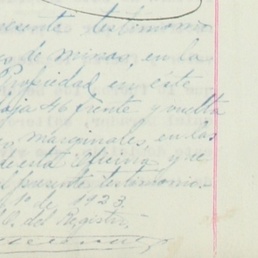 presente testimonio
de minas, en la
Propiedad en éste
foja 46 frente y vuelta
en marginales, en las
de esta Oficina y re
el presente testimonio.-
1º de 1923.
del Registro